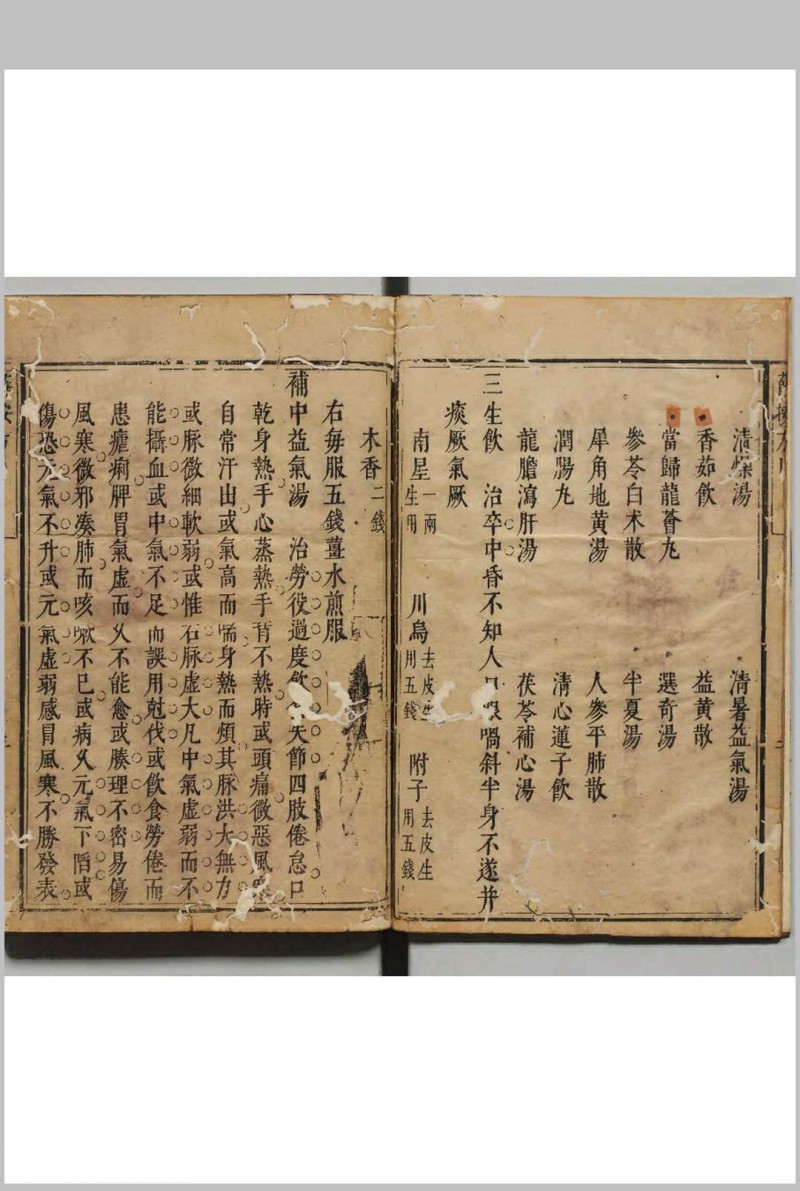 清燥湯　清暑益氣湯
香茹飲　益黃散
當歸龍薈丸　選奇湯
參苓白术散　半夏湯
犀角地黃湯　人參平肺散
潤腸丸　清心蓮子飲
龍膽瀉肝湯　茯苓補心湯
三生飲　治卒中昏不知人口眼喎斜半身不遂并
痰厥氣厥
南星一兩生用　川烏去皮生用五錢　附子去皮生用五錢
木香二錢
右每服五錢薑水煎服
補中益氣湯　治勞役過度飲失節四肢倦怠口
乾身熱手心蒸熱手背不熱時或頭痛微惡風寒
自常汗出或氣高而喘身熱而煩其脉洪大無力
或脉微細軟弱或惟右脉虛大凡中氣虛弱而不
能攝血或中氣不足而誤用尅伐或飲食勞倦而
患瘧痢脾胃氣虛而久不能愈或腠理不密易傷
風寒微邪湊肺而咳嗽不已或病久元氣下陷或
傷恐元氣不升或元氣虛弱感冒風寒不勝發表